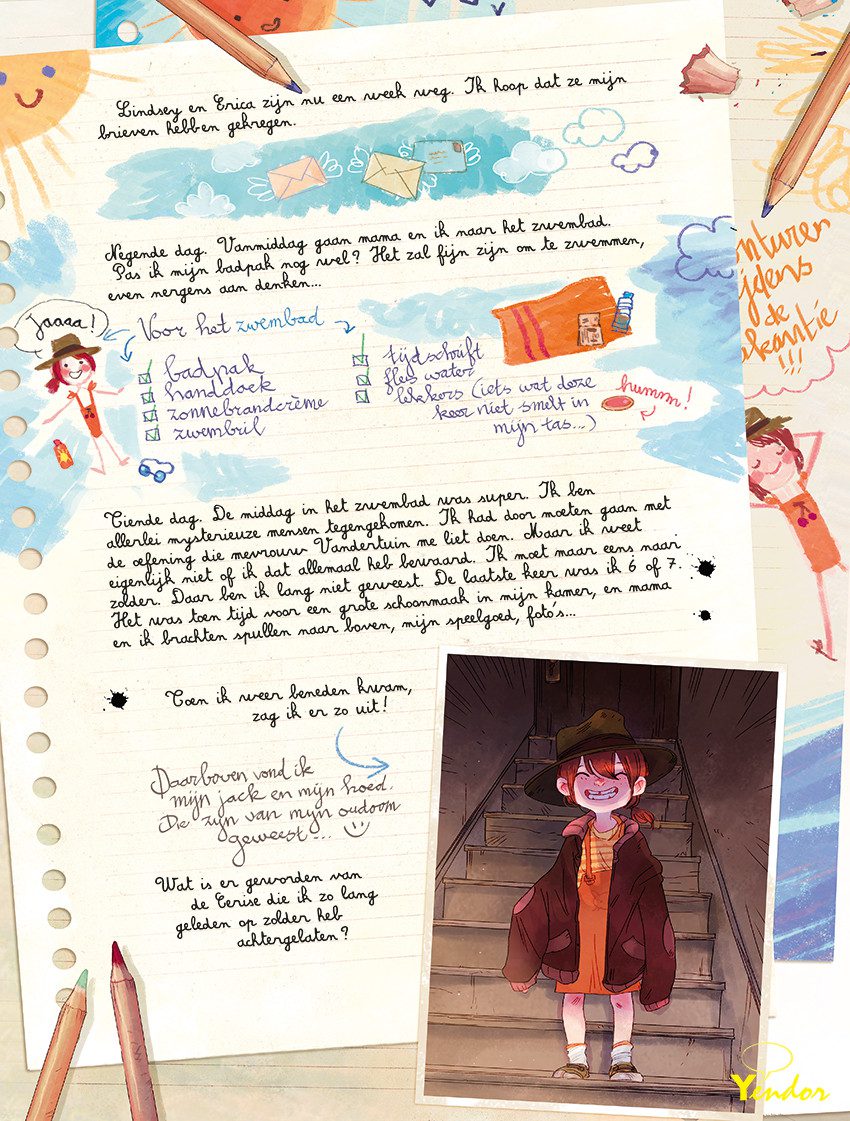 Lindsey en Erica zijn nu een week weg. Ik hoop dat ze mijn
brieven hebben gekregen.
Negende dag. Vanmiddag gaan mama en ik naar het zwembad.
Pas ik mijn badpak nog wel? Het zal fijn zijn om te zwemmen,
even nergens aan denken...
Jaaaa!
Voor het zwembad
badpak
handdoek
zonnebrandcrème
zwembril
tijdschrift
fles water
lekkers (iets wat deze
keer niet smelt in
mijn tas...)
hummm!
Tiende dag. De middag in het zwembad was super. Ik ben
allerlei mysterieuze mensen tegengekomen. Ik had door moeten gaan met
de oefening die mevrouw Vandertuin me liet doen. Maar ik weet
eigenlijk niet of ik dat allemaal heb bewaard. Ik moet maar eens naar
zolder. Daar ben ik lang niet geweest. De laatste keer was ik 6 of 7.
Het was toen tijd voor een grote schoonmaak in mijn kamer, en mama
en ik brachten spullen naar boven, mijn speelgoed, foto's...
Toen ik weer beneden kwam,
zag ik er zo uit!
Daarboven vond ik
mijn jack en mijn hoed.
Die zijn van mijn oudoom
geweest...
Wat is er geworden van
de Cerise die ik zo lang
geleden op zolder heb
achtergelaten?
onturen
ijdens
de
kantie
!!!
Yendor